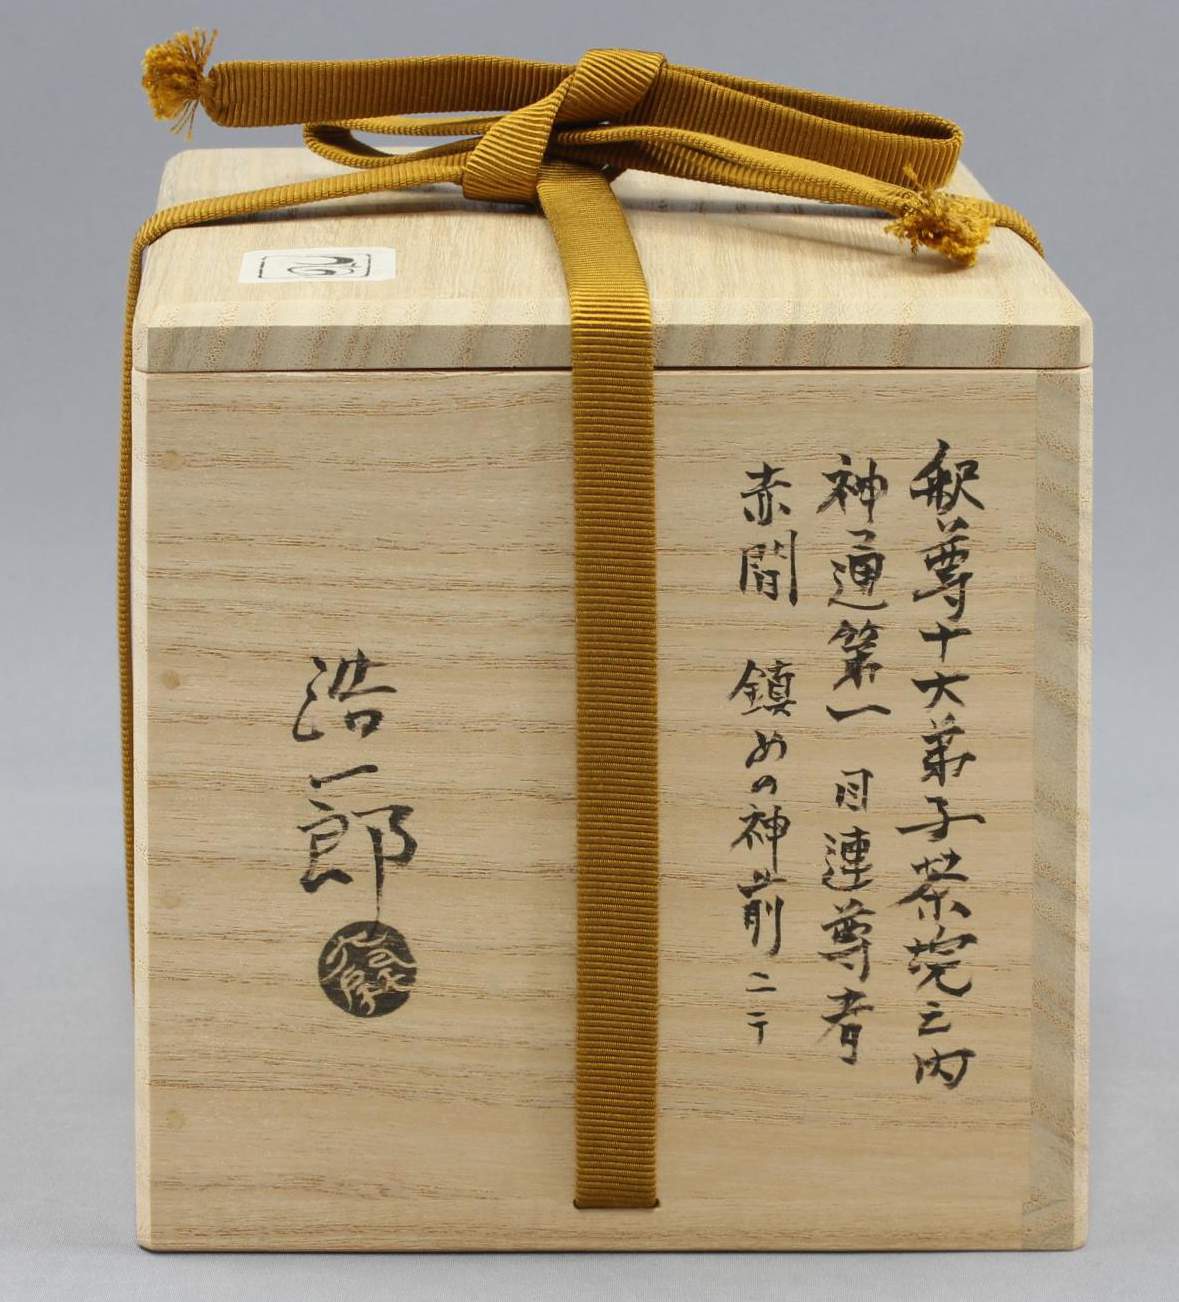 釈尊十大弟子茶碗之内
神通第一 目連尊者
赤間 鎮めの神前ニテ
浩一郎